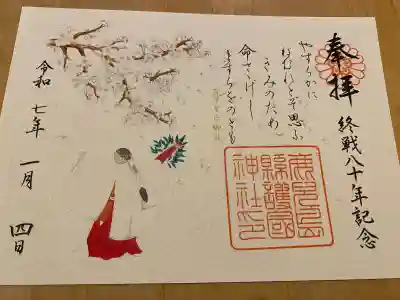 奉拝
終戦八十年記念
やすらかに
ねむれとぞ思ふ
きみのため
命さゝげし
ますらをのとも
鹿児島
縣護國
神社印
令和七年一月四日